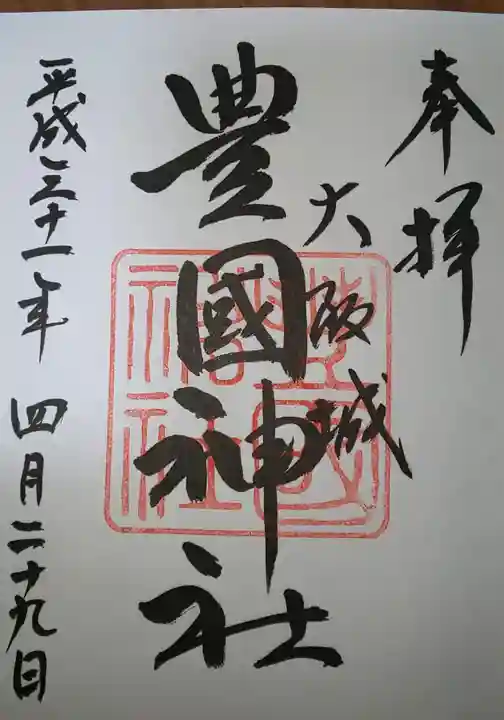 奉拝
大阪城
豊國神社
平成三十一年 四月二十九日
豊國神社